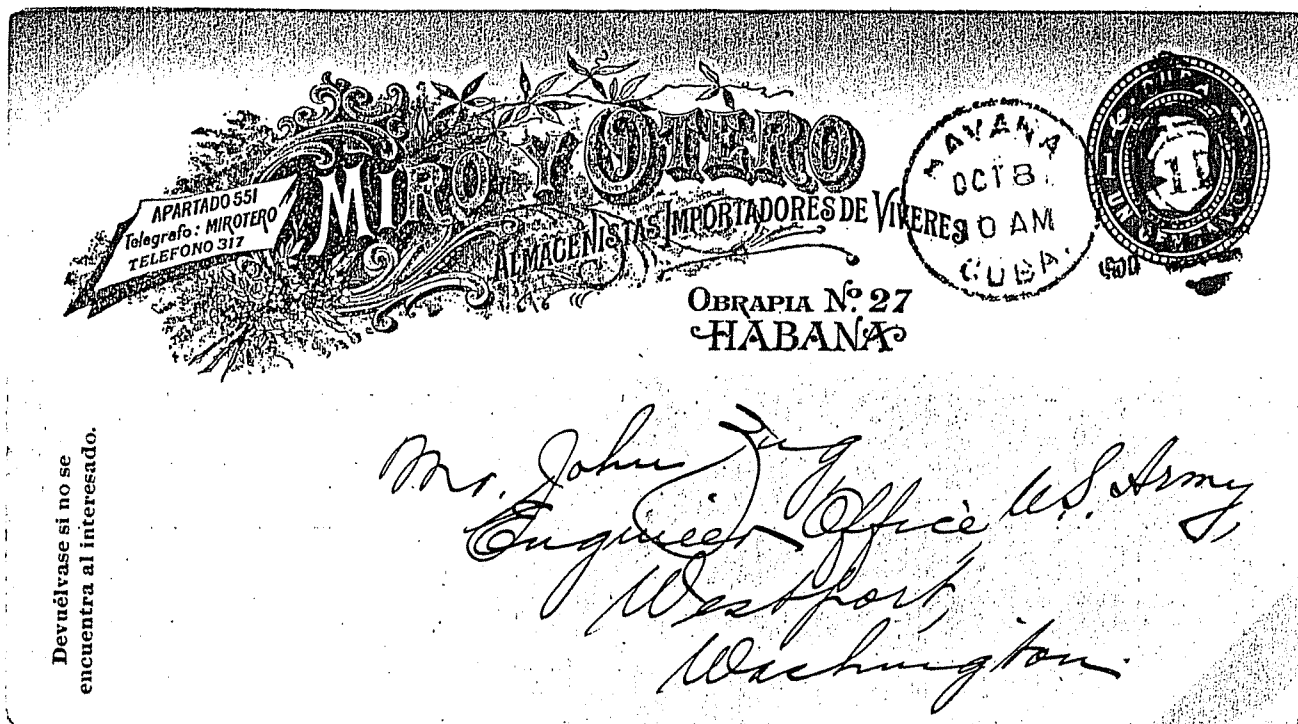 MIRO Y OTERO
APARTADO 551
Telegrafo: MIROTERO
TELEFONO 317
ALMACENISTAS IMPORTADORES DE VIVERES
OBRAPIA Nº. 27
HABANA
HAVANA
OCT 8
CUBA.
Devuélvase si no se
encuentra al interesado.
Mr. John Zug
Engineer Office U.S. Army,
Westport,
Washington.